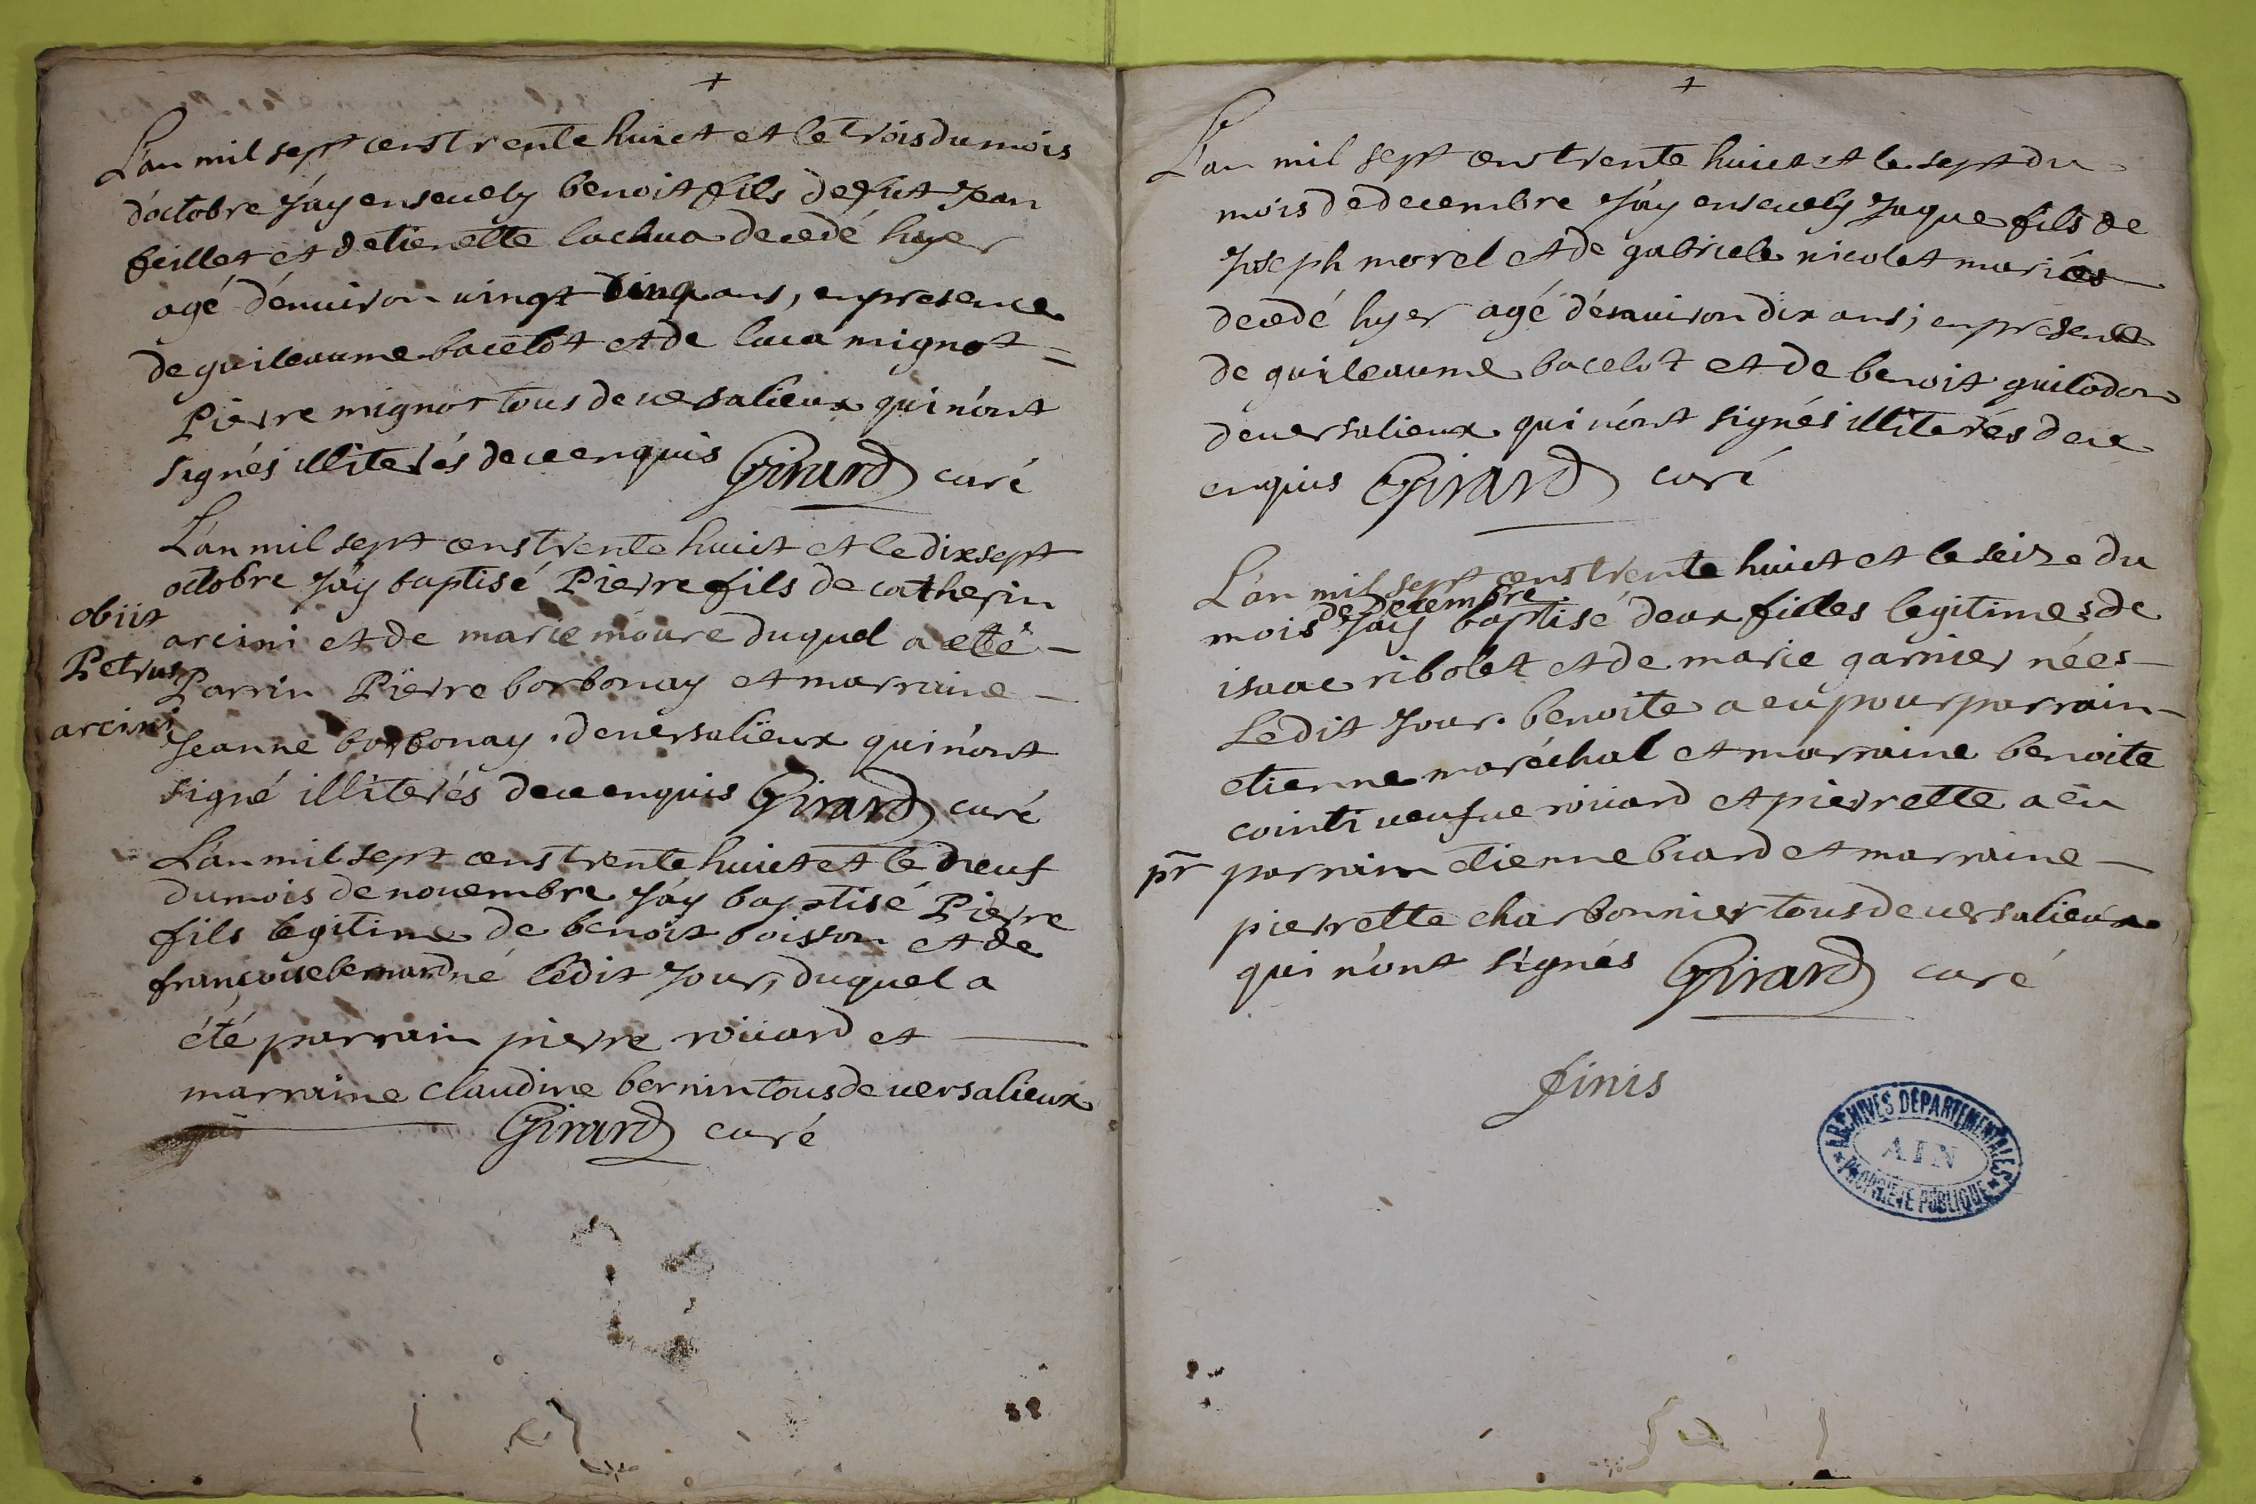 +
L'an mil sept cens trente huict et le trois du mois
d'octobre J'ay enseuely benoit fils defut Jean
feillet et detienette lachua decedé hyer
agé d'enuiron uingt cinq ans, en presence
de guileaume bacelot et de luca mignot =
Pierre mignot tous de uersalieux qui n'ont
signés illiterés de ce enquis Girard curé
L'an mil sept cens trente huict et le dixsept
octobre J'ay baptisé Pierre fils de catherin
arcini et de marie moure duquel a eté -
Parrin Pierre borbonay et marraine -
Jeanne borbonay . de uersalieux qui n'ont
signé illiterés de ce enquis Girard curé
obiit
Petrus
arcini
L'an mil sept cens trente huict et le neuf
du mois de nouembre J'ay baptisé Pierre
fils legitime de benoit boisson et de
françoise bernard né ledit Jour, duquel a
été parrain pierre roüard et
marraine claudine bernin tous de uersalieux
Girard curé
+
L'an mil sept cens trente huict et le sept du
mois de decembre J'ay enseuely Jaque fils de
Joseph morel et de gabriele nicolet mariés
decedé hyer agé d'enuiron dix ans, en presence
de guileaume bacelot et de benoit guilodon
de uersalieux qui n'ont signés illiterés de ce
enquis Girard curé
L'an mil sept cens trente huict et le seize du
de decembre
mois J'ay baptisé deux filles legitimes de
isaac ribolet et de marie garnier nées -
Ledit Jour. benoite a eu pour parrain -
etienne maréchal et marraine benoite
cointi ueufue roüard et pierrette a eu
pr parrain etienne biard et marraine -
pierrette charbonnier tous de uersalieux
qui n'ont signés Girard curé
finis
ARCHIVES DÉPARTEMENTALES
AIN
PROPRIÉTÉ PUBLIQUE